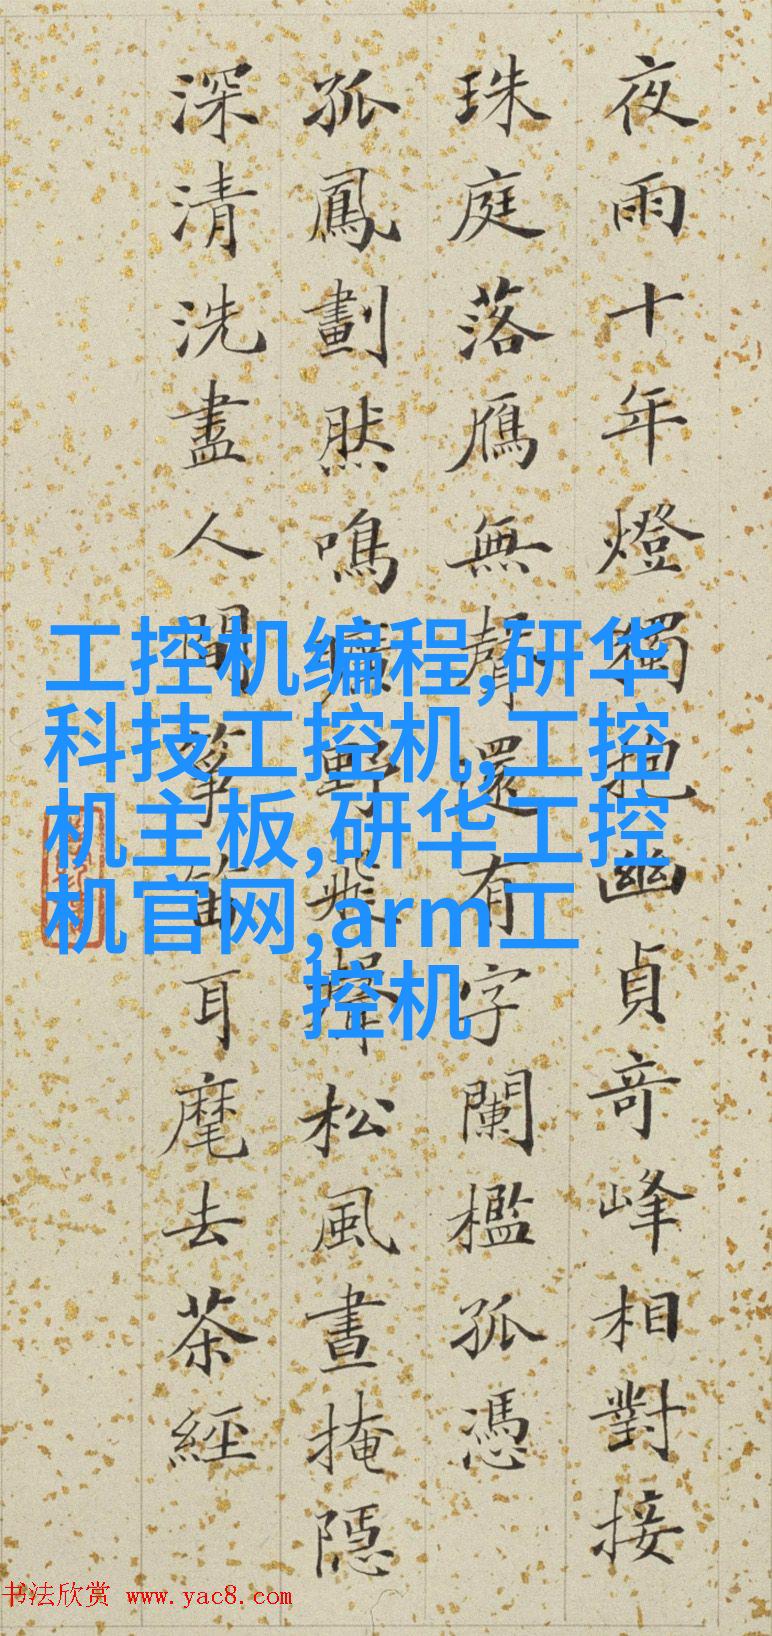 夜雨十年燈獨抱幽貞竒峰相對接
珠庭落鴈無聲還有字闌檻孤憑
孤鳳劃然鳴野聲松風晝掩隱
深清洗盡人間箏笛耳麾去茶經
工控机编程,研华
科技工控机,工控
机主板,研华工控
机官网,arm工
控机
书法欣赏 www.yac8.com